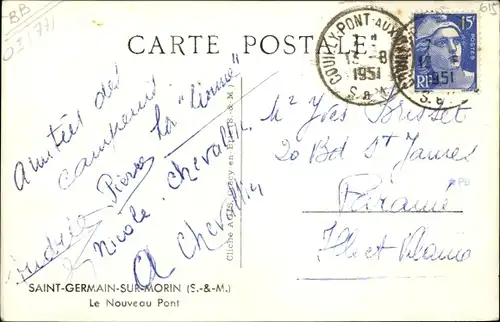 BB
CARTE POSTALE
615
COUILLY-PONT-AUX
13-8
1951
S.&
15F
RF
POSTES
Amitiés des
campeurs
Andrée Pierre La "
Nicole Chevallier
A Chevallier
Mr Yves Brisset
20 Bd St James
Paramé
Ille et Vilaine
SAINT-GERMAIN-SUR-MORIN (S.-&-M.)
Le Nouveau Pont